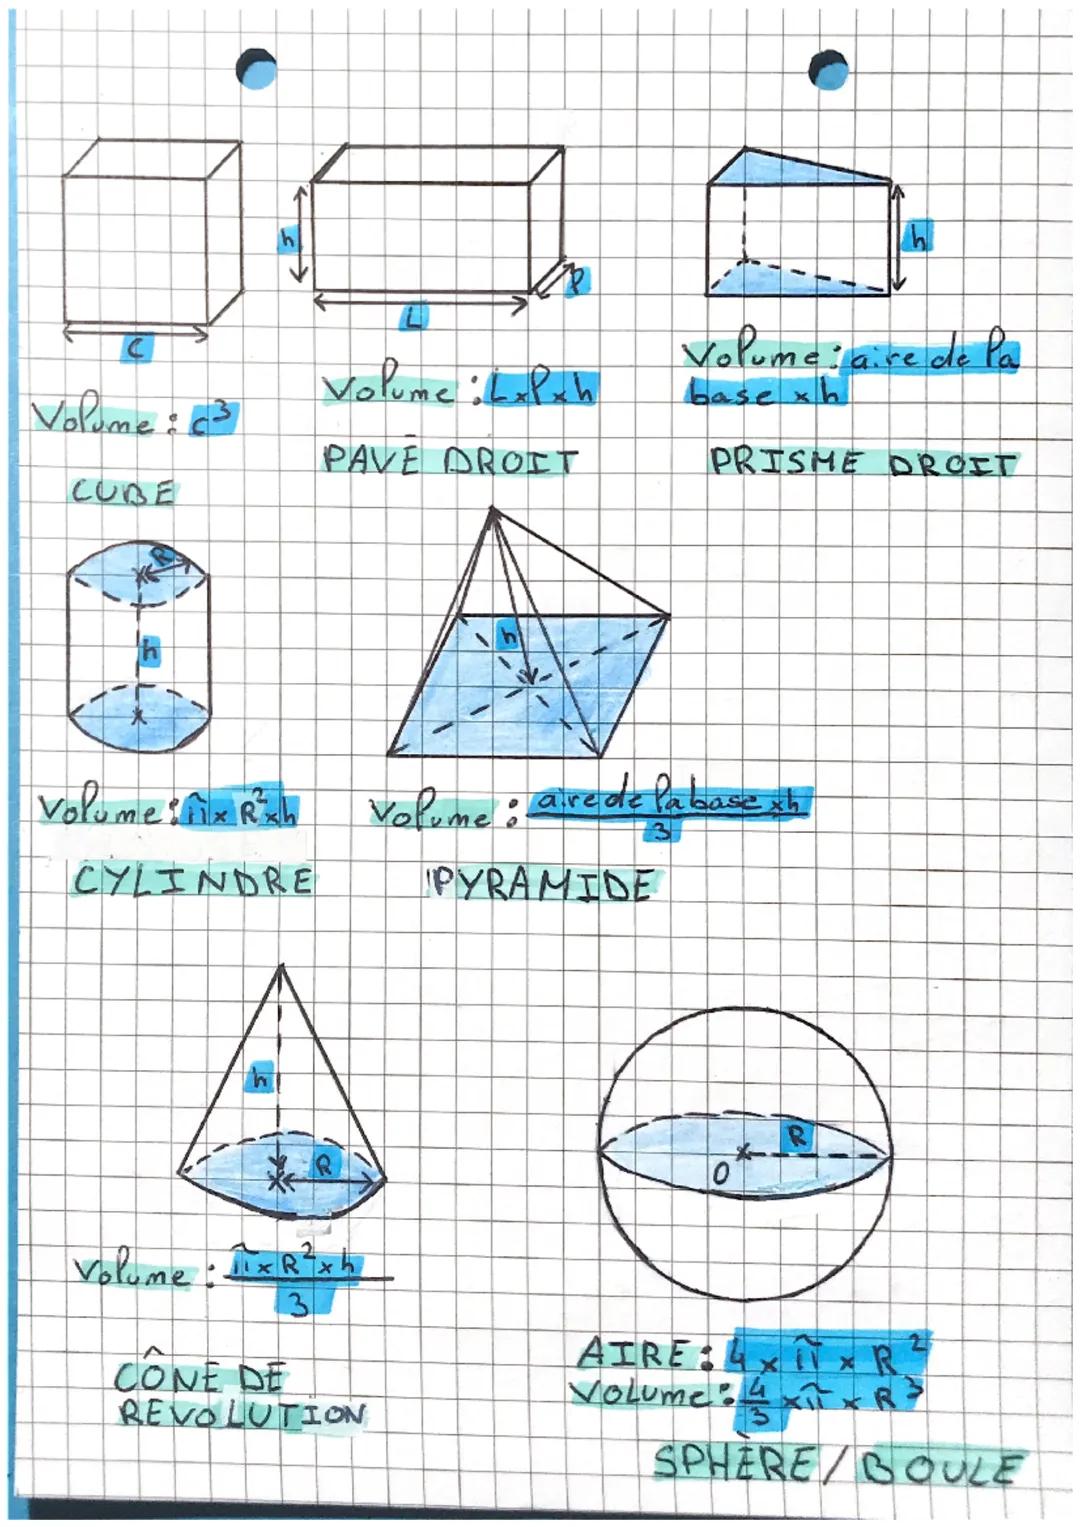 C
Volume : c³
CUBE
h
L
P
Volume : L x l x h
PAVÉ DROIT
h
Volume : aire de la
base x h
PRISME DROIT
R
h
Volume : π x R² x h
CYLINDRE
h
Volume : aire de la base x h
3
PYRAMIDE
h
R
Volume : π x R² x h
3
CÔNE DE
REVOLUTION
R
O
AIRE : 4 x π x R²
VOLUME : 4/3 x π x R³
SPHÈRE / BOULE